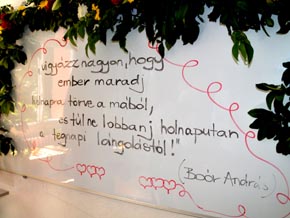 vigyázz nagyon, hogy
ember maradj
holnapra törve a mából,
és túl ne lobbanj holnaputan
a tegnapi lángolástól!"
(Boór András)